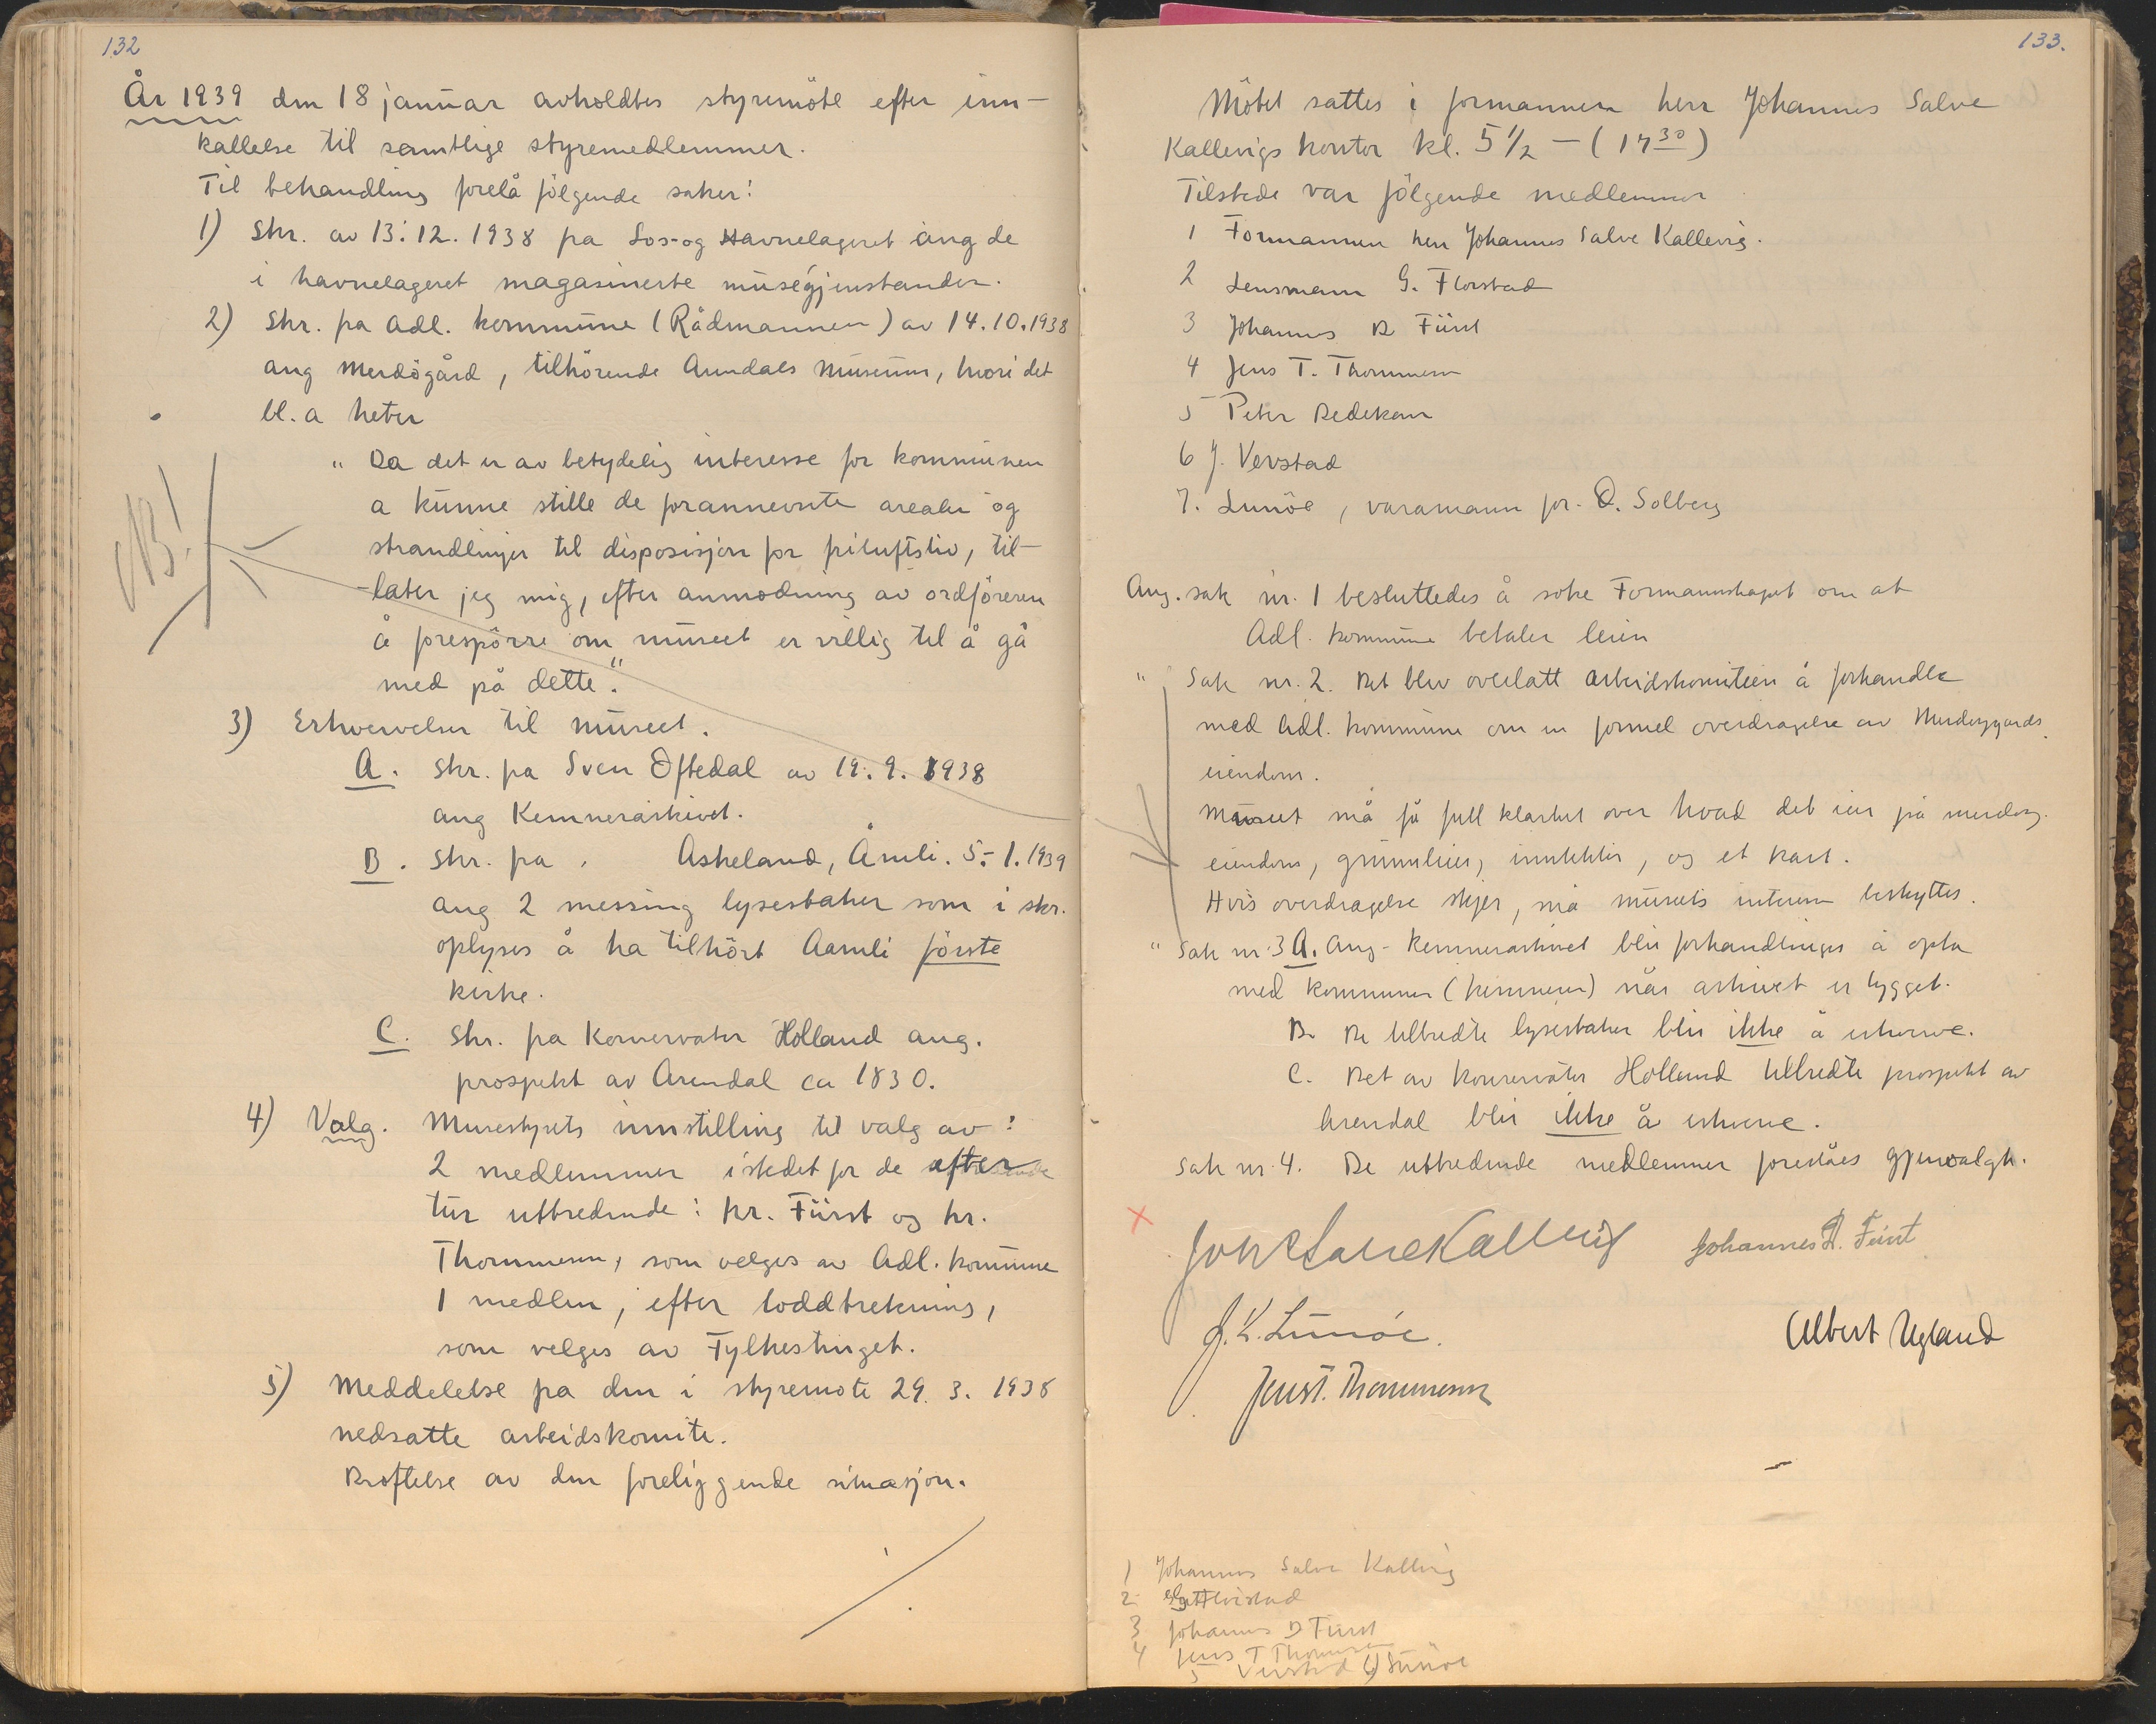 132
År 1939 den 18 januar avholdtes styremöte efter inn-
kallelse til samtlige styremedlemmer.
Til behandling forelå fölgende saker:
1) Skr. av 13.12. 1938 fra Los- og Havnelageret ang de
i havnelageret magasinerte muségjenstander.
2) Skr. fra Adl. kommune (Rådmannen) av 14.10.1938
ang Merdögård, tilhörende Arendals Museum, hvori det
bl. a heter
NB!
" Da det er av betydelig interesse for kommunen
a kunne stille de forannevnte arealer og
strandlinjer til disposisjon for friluftsliv, til-
later jeg mig, efter anmodning av ordföreren
å forespörre om museet er villig til å gå
med på dette."
3) Erhvervelser til museet.
A. Skr. fra Sven Oftedal av 19.9. 1938
ang Kemnerarkivet.
B. Skr. fra . Askeland, Åmli. 5.-1.1939
ang 2 messing lysestaker som i skr.
oplyses å ha tilhört Aamli förste
kirke.
C. Skr. fra Konservator Holland ang.
prospekt av Arendal ca 1830.
4) Valg. Musestyrets innstilling til valg av:
2 medlemmer istedet for de efter
tur uttredende: hr. Fürst og hr.
Thommesen, som velges av Adl. kommune
1 medlem, efter loddtrekning,
som velges av Fylkestinget.
5) Meddelelse fra den i styremöte 29. 3. 1938
nedsatte arbeidskomite.
Dröftelse av den foreliggende situasjon.
133.
Mötet sattes i formannen herr Johannes Salve
Kallevigs kontor kl. 5 1/2 - (17 30)
Tilstede var fölgende medlemmer
1 Formannen herr Johannes Salve Kallevig.
2 Lensmann G. Florstad
3 Johannes D Fürst
4 Jens T. Thommesen
5 Peter Dedekam
6 J. Vevstad
7. Lunöe, varamann for O. Solberg
Ang. sak nr. 1 besluttedes å söke Formannskapet om at
Adl. kommune betaler leien
" Sak nr. 2. Det blev overlatt arbeidskomiteen å forhandle
med Adl. kommune om en formel overdragelse av Merdöygårds
eiendom.
Museet må få full klarhet over hvad det eier på merdöy.
eiendom, grunnleier, inntekter, og et kart.
Hvis overdragelse skjer, må museets interesser beskyttes.
" Sak nr. 3 A. Ang. Kemnerarkivet blir forhandlinger å opta
med kommunen (kemneren) når arkivet er bygget.
B. De tilbudte lysestaker blir ikke å erhverve.
C. Det av konservator Holland tilbudte prospekt av
Arendal blir ikke å erhverve.
Sak nr. 4. De uttredende medlemmer foreslåes gjenvalgt.
Joh Salve Kallevig Johannes D. Fürst
J. K. Lunöe. Albert Ugland
Jens T. Thommesen
1 Johannes Salve Kallevig
2 Florstad
3 Johannes D Fürst
4 Jens T Thommesen
5 Vevstad 6) Lunöe